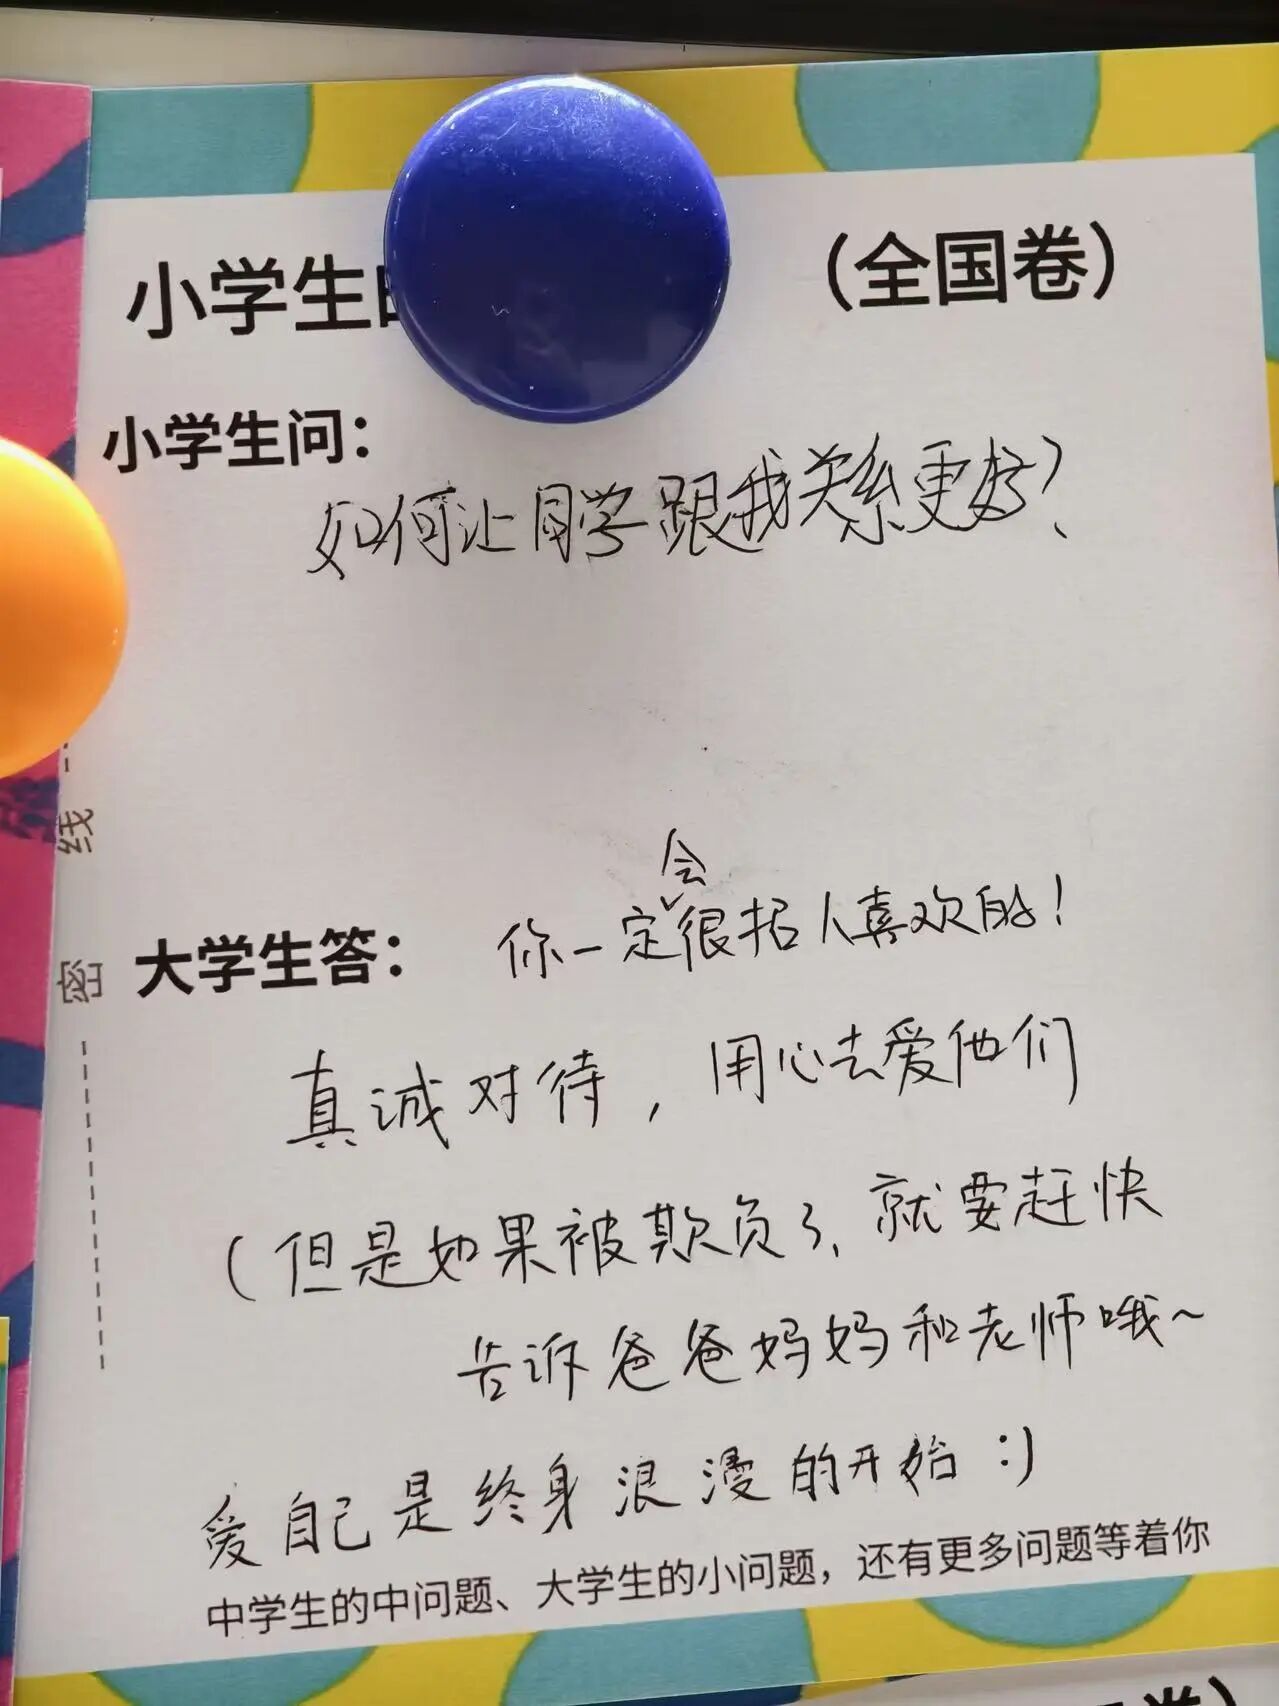 小学生的 （全国卷）
小学生问：
如何让同学跟我关系更好？
大学生答：
你一定会很招人喜欢的！
真诚对待，用心去爱他们
（但是如果被欺负了、就要赶快
告诉爸爸妈妈和老师哦~
爱自己是终身浪漫的开始：)
中学生的中问题、大学生的小问题，还有更多问题等着你
密 线